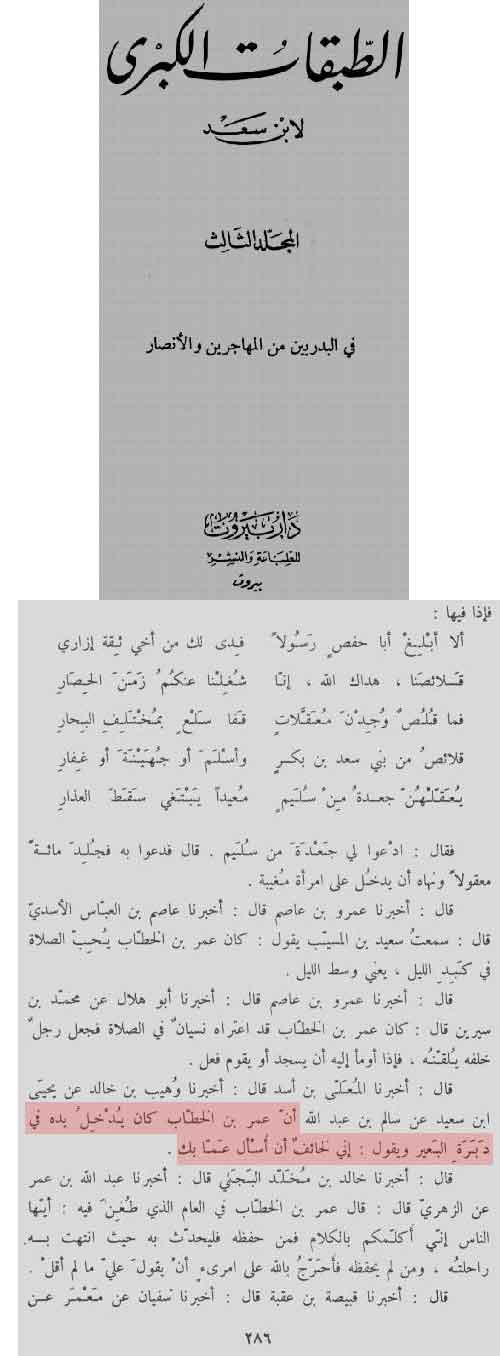 الطّبقات الكبرى
لابن سعد
المجلد الثالث
في البدريين من المهاجرين والأنصار
دار بيروت
للطباعة والنشر
بيروت
فإذا فيها :
ألا أبْلِغْ أبا حفصٍ رَسُولاً فدى لك من أخي ثقة إزاري
قَلائصَنا ، هداك الله ، إنّا شُغِلْنا عنكمُ زَمَنَ الحِصَارِ
فما قُلُصٌ وُجِدْنَ مُعَقَّلاتٍ قَفَا سَلْعٍ بمُخْتَلِفِ البِحارِ
قلائصُ من بني سعد بن بكرٍ وأسْلَمَ أو جُهَيْنَةَ أو غِفارِ
يُعَقّلُهُنّ جعدةُ مِنْ سُلَيمٍ مُعيداً يَبْتَغي سَقَطَ العذارِ
فقال : ادْعوا لي جَعْدَةَ من سُلَيم . قال فدعوا به فجُلِدَ مائةً
معقولاً ونهاه أن يدخل على امرأة مُغيبة .
قال : أخبرنا عمرو بن عاصم قال : أخبرنا عاصم بن العبّاس الأسديّ
قال : سمعتُ سعيد بن المسيّب يقول : كان عمر بن الخطّاب يُحِبّ الصلاة
في كَبِدِ الليل ، يعني وسط الليل .
قال : أخبرنا عمرو بن عاصم قال : أخبرنا أبو هلال عن محمّد بن
سيرين قال : كان عمر بن الخطّاب قد اعتراه نسيانٌ في الصلاة فجعل رجلٌ
خلفه يُلقّنُه ، فإذا أومأ إليه أن يسجد أو يقوم فعل .
قال : أخبرنا المُعَلّى بن أسد قال : أخبرنا وُهيب بن خالد عن يحيَى
ابن سعيد عن سالم بن عبد الله أنّ عمر بن الخطّاب كان يُدْخِلُ يده في
دَبَرَةِ البَعير ويقول : إني لخائفٌ أن أُسْألَ عَمّا بك .
قال : أخبرنا خالد بن مُخَلّد البَجَلي قال : أخبرنا عبد الله بن عمر
عن الزهريّ قال : قال عمر بن الخطّاب في العام الذي طُعِنَ فيه : أيّها
الناس إنّي أكلّمكم بالكلام فمن حفظه فليحدّث به حيث انتهت به
راحلتُه ، ومن لم يحفظه فأُحَرّجُ بالله على امرىءٍ أنْ يقولَ عليّ ما لم أقلْ .
قال : أخبرنا قبيصة بن عقبة قال : أخبرنا سُفيان عن مَعْمَر عن
٢٨٦